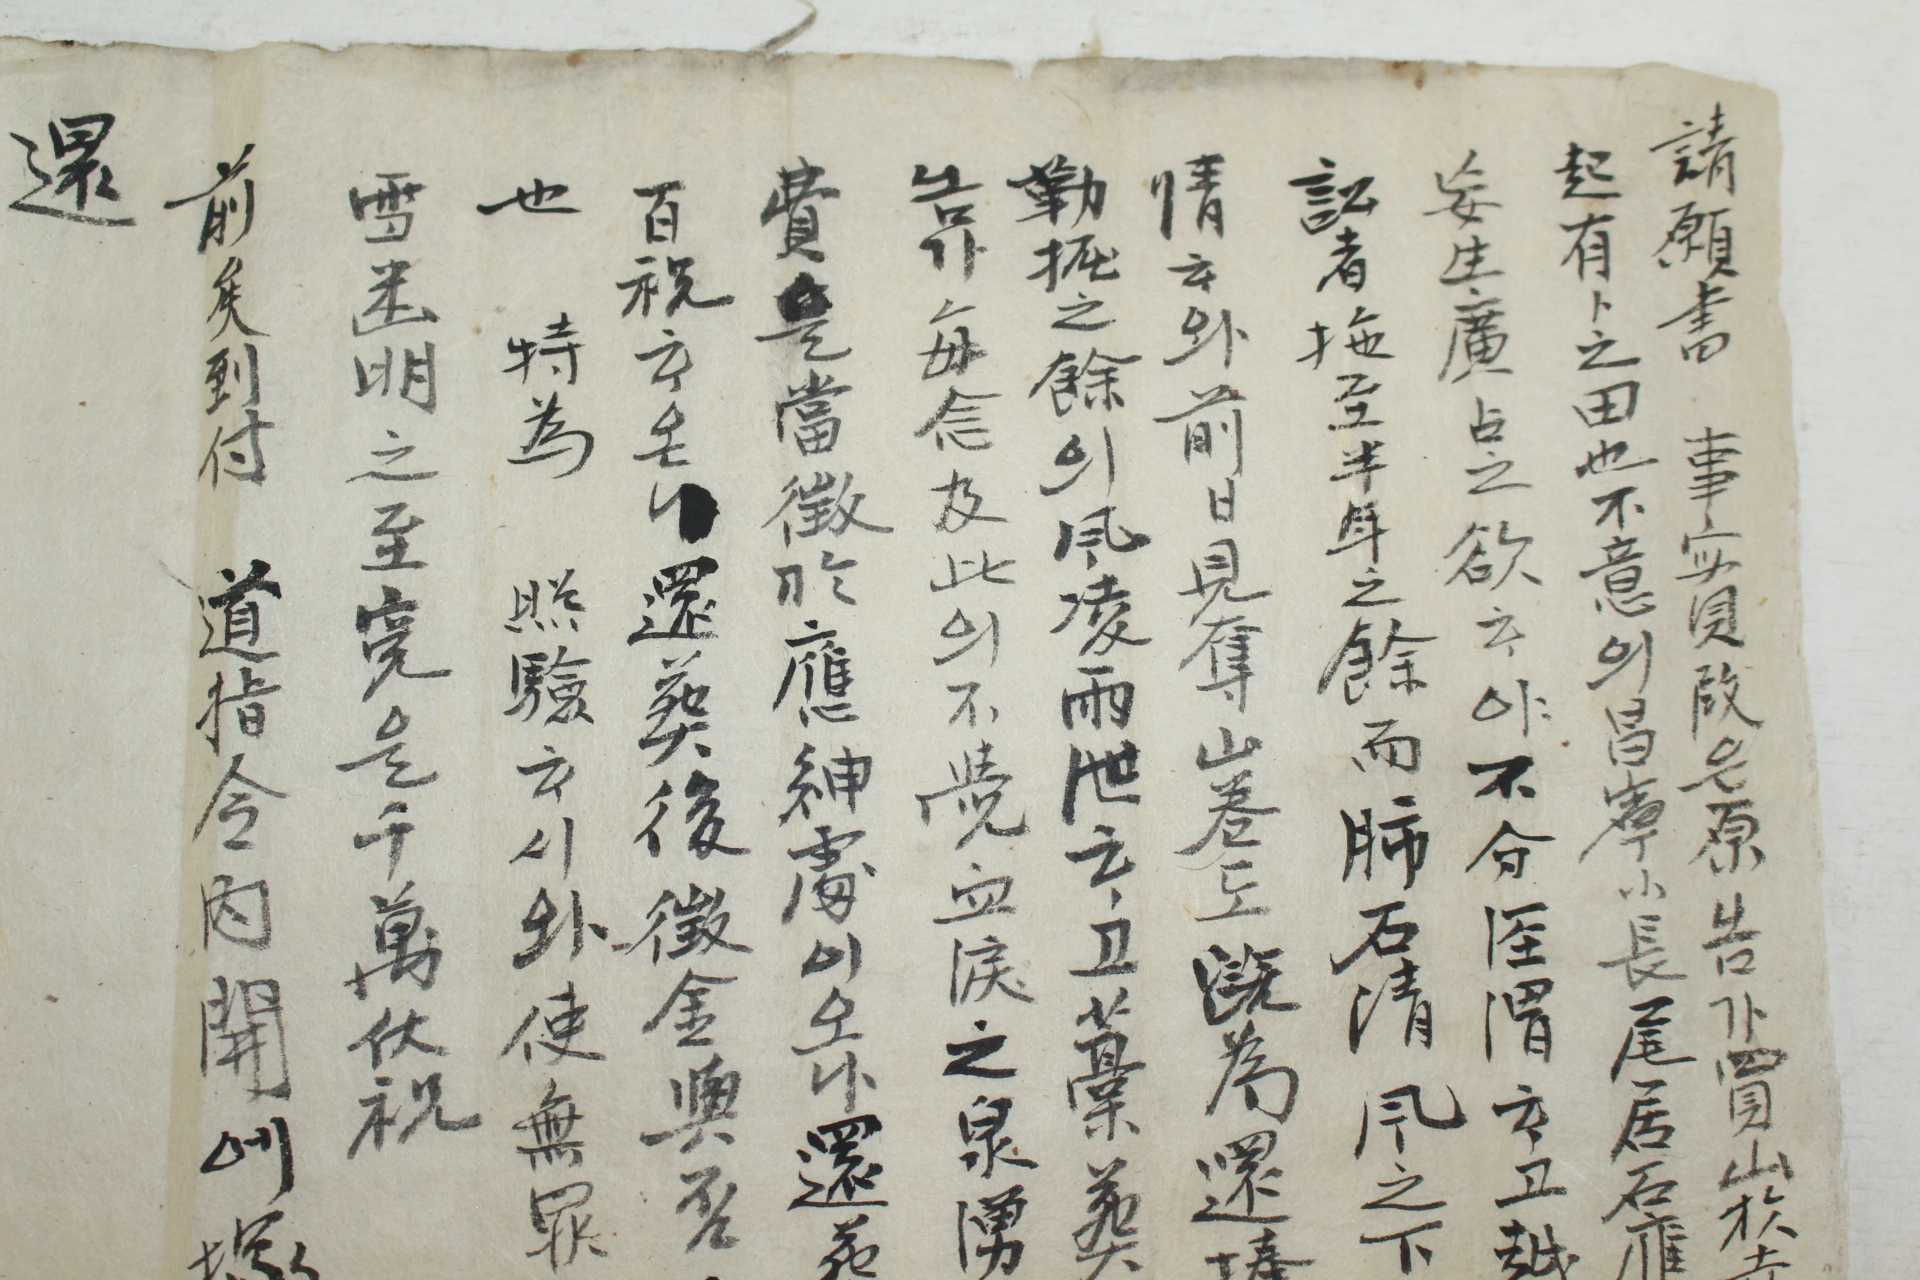 請願書 事實段은原告가買山於
起有卜之田也不意의昌寧小長尾居石
妄生廣占之欲하야不分涇渭하고越
訟者拖至半年之餘而肺石清風之下
情하와前日見奪山巻도 為還
勒掘之餘의風凌雨泄하고藁葬
告가每念及此의不覺血淚之泉湧
費을當徵於應紳處이오나還
百祝하오니還葬後徵金與否
也 特為 照驗하시와使無罪
雪幽明之至寃을千萬伏祝
前矣到付 道指令內開에塚
還